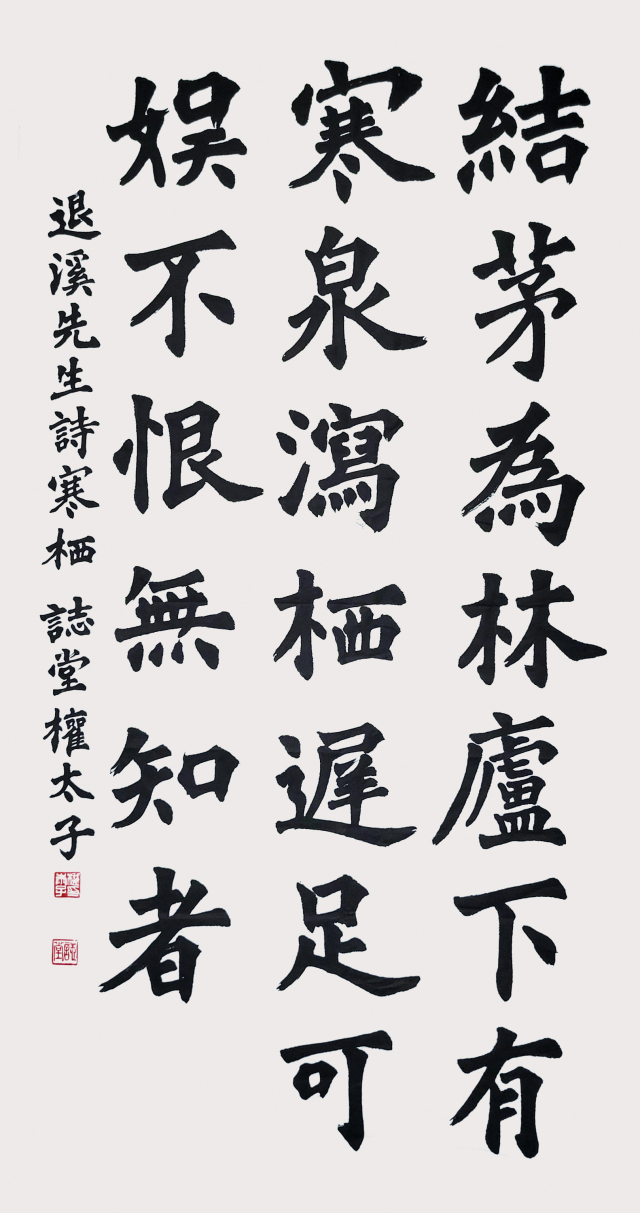 結茅為林廬下有
寒泉瀉栖遲足可
娛不恨無知者
退溪先生詩寒栖 誌堂權太子